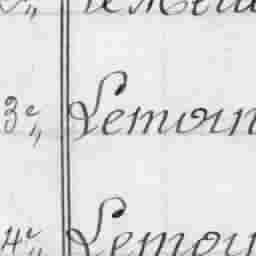 3e,, Lemoin
4e,, Lemoin